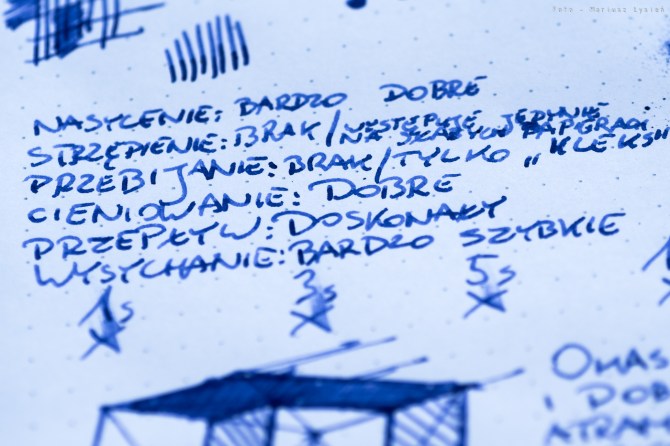 Foto - Mariusz Łysiak
NASYCENIE: BARDZO DOBRE
STRZĘPIENIE: BRAK / WYSTĘPUJE JEDYNIE
NA SŁABYCH PAPIERACH
PRZEBIJANIE: BRAK / TYLKO „KLEKS"
CIENIOWANIE: DOBRE
PRZEPŁYW: DOSKONAŁY
WYSYCHANIE: BARDZO SZYBKIE
1s 3s 5s
I DOB
ATRAM